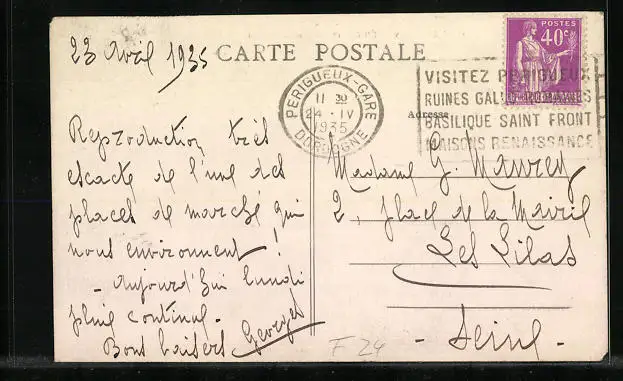 23 Avril 1935
CARTE POSTALE
POSTES
40c
PERIGUEUX-GARE
11 30
24 - IV
1935
DORDOGNE
VISITEZ PERIGUEUX
RUINES GALLO-ROMAINES
BASILIQUE SAINT FRONT
MAISONS RENAISSANCE
Adresse
Reproduction très
exacte de l'une des
places de marché qui
nous environnent !
- Aujourd'hui lundi
pluie continue -
Bons baisers Georges
Madame G. Maurey
2, place de la Mairie
Les Lilas
- Seine -
F 24